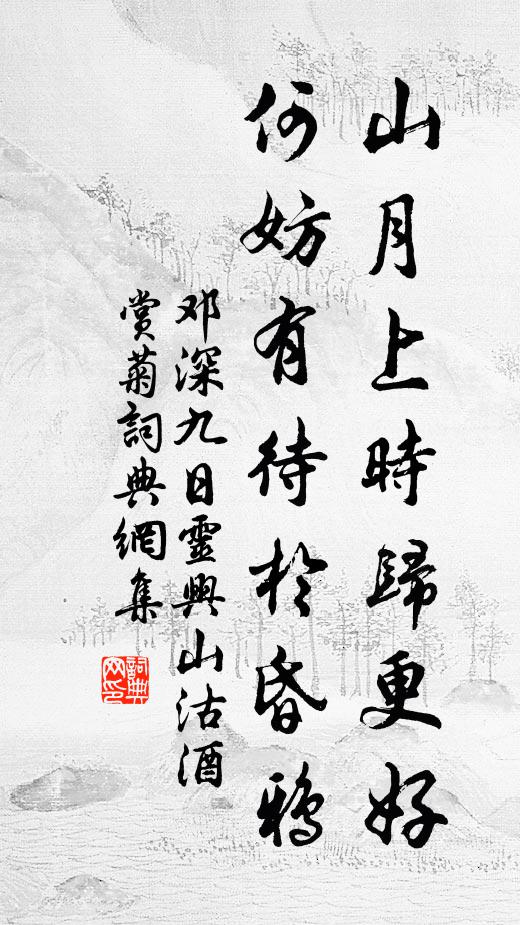 山月上時歸更好
何妨有待於昏鴉
邓深九日靈興山沽酒
賞菊詞典網集
詞典网印